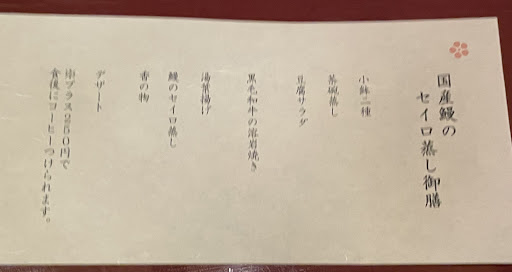 国産鰻の
セイロ蒸し御膳
小鉢二種
茶碗蒸し
豆腐サラダ
黒毛和牛の溶岩焼き
湯葉揚げ
鰻のセイロ蒸し
香の物
デザート
プラス250円で
食後にコーヒーつけられます。